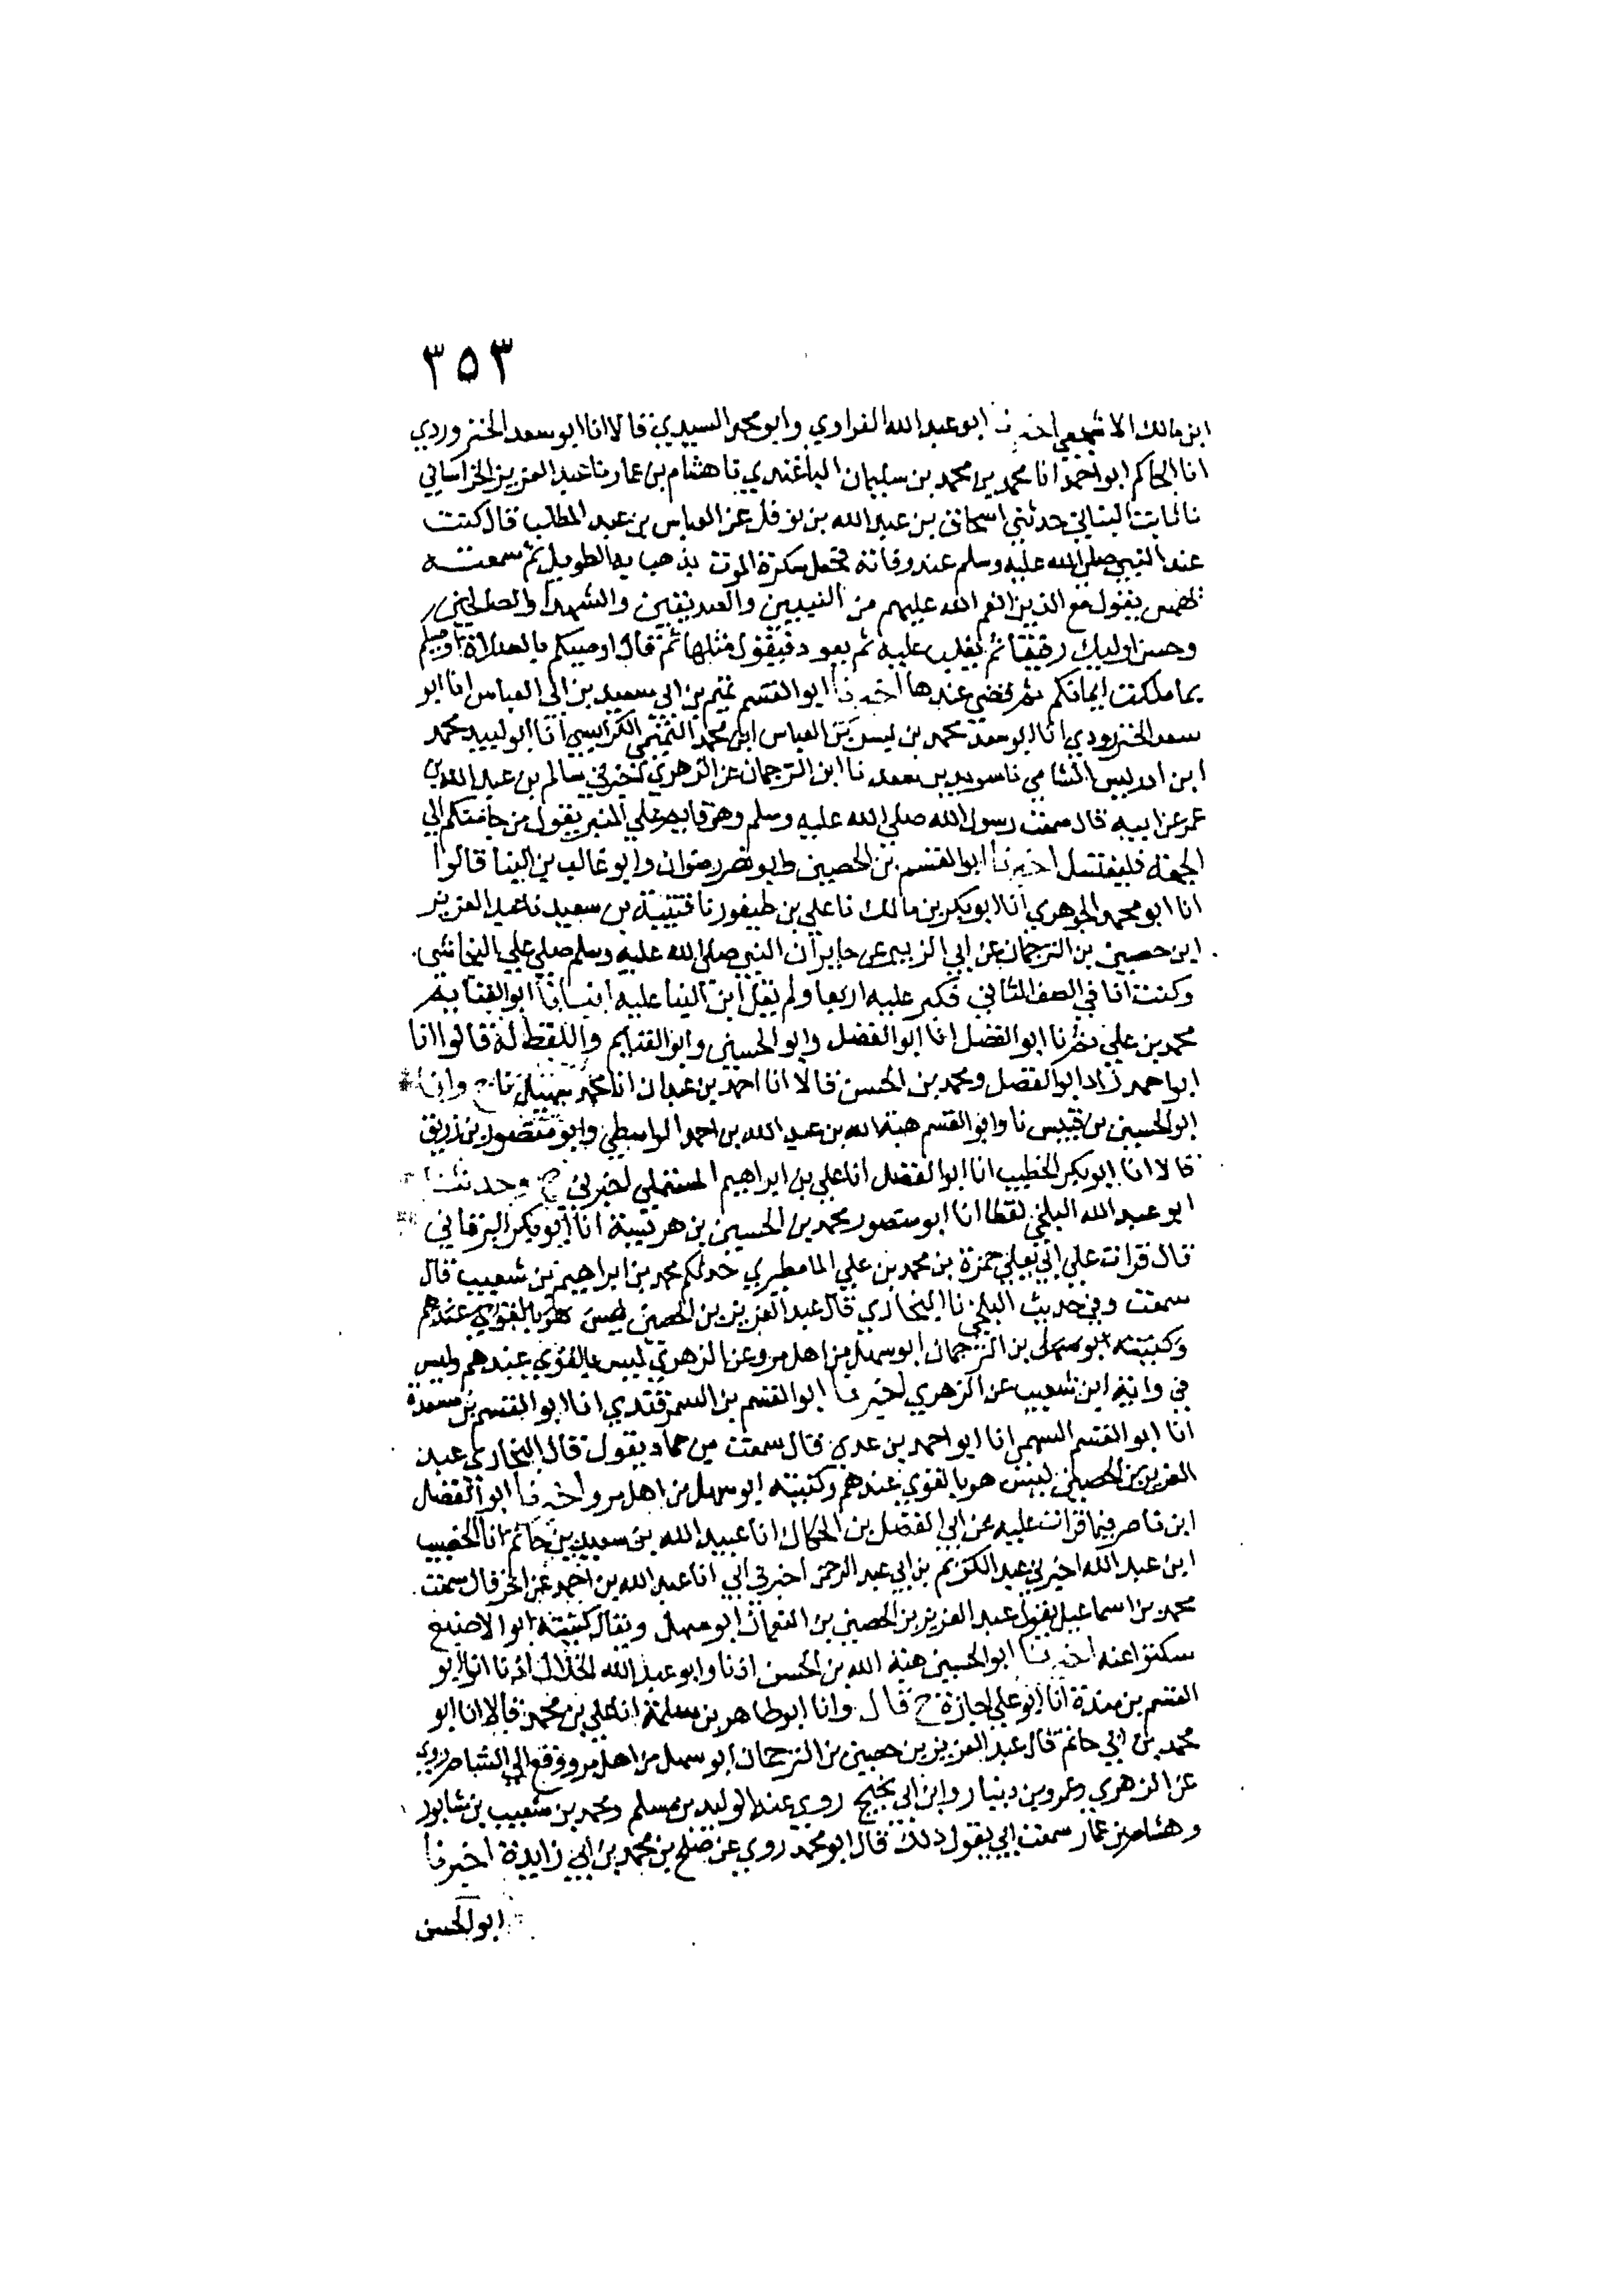 ٣٥٣
ابن مالك الاشجعي اخبرنا ابو عبد الله الفراوي وابو محمد السيدي قالا انا ابو سعد الخنزرودي
انا الحاكم ابو احمد انا محمد بن محمد بن سليمان الباغندي نا هشام بن عمار نا عبد العزيز الخراساني
نا ثابت البناني حدثني اسحاق بن عبد الله بن نوفل عن العباس بن عبد المطلب قال كنت
عند النبي صلى الله عليه وسلم عند وفاته فجعل سكرة الموت يذهب به الطويل ثم سمعته
يهمس يقول مع الذين انعم الله عليهم من النبيين والصديقين والشهدا والصالحين
وحسن اوليك رفيقا ثم يغلب عليه ثم يعود فيقول مثلها ثم قال اوصيكم بالصلاة اوصيكم
بما ملكت ايمانكم ثم قضى عندها اخبرنا ابو القسم تميم بن ابي سعيد بن ابي العباس انا ابو
سعد الخنزرودي انا ابو سعد محمد بن بن العباس ابن محمد التميمي الكرابيسي انا ابو لبيد محمد
ابن ادريس الشامي نا سويد بن سعيد نا ابن الترجمان عن الزهري اخبرني سالم بن عبد الله بن
عمر عن ابيه قال سمعت رسول الله صلي الله عليه وسلم وهو قايم علي المنبر يقول من جا منكم الي
الجمعة فليغتسل اخبرنا ابو القسم بن الحصين وابو نصر رضوان وابو غالب بن البنا قالوا
انا ابو محمد الجوهري انا ابو بكر بن مالك نا علي بن طيفور نا قتيبة بن سعيد نا عبد العزيز
ابن حصين بن الترجمان عن ابي الزبير عن جابر ان النبي صلى الله عليه وسلم صلي علي النجاشي
وكنت انا في الصف الثاني فكبر عليه اربعا ولم يقل ابن البنا عليه انبانا ابو الغنايم
محمد بن علي ثم نا ابو الفضل انا ابو الفضل وابو الحسين وابو الغنايم واللفظ له قالوا انا
ابو احمد زاد ابو الفضل ومحمد بن الحسن قالا انا احمد بن عبدان انا محمد بن سهل نا ح وانا
ابو الحسين بن قبيس نا وابو القسم هبة الله بن عبد الله بن احمد الواسطي وابو منصور بن زريق
قالا انا ابو بكر الخطيب انا ابو الفضل انا علي بن ابراهيم المستملي اخبرني ح وحدثنا
ابو عبد الله البلخي لفظا انا ابو منصور محمد بن الحسين بن هريسة انا ابو بكر البرقاني
قال قرات علي ابي يعلي حمزة بن محمد بن علي المامطيري حدثكم محمد بن ابراهيم بن شعيب قال
سمعت وفي حديث البلخي نا البخاري قال عبد العزيز بن الحصين ليس هو بالقوي عندهم
وكنيته ابو سهل بن الترجمان ابو سهل من اهل مرو عن الزهري ليس بالقوي عندهم وليس
في رواية ابن شعيب عن الزهري اخبرنا ابو القسم بن السمرقندي انا ابو القسم بن مسعدة
انا ابو القسم السهمي انا ابو احمد بن عدي قال سمعت بن حماد يقول قال البخاري عبد
العزيز بن الحصين ليس هو بالقوي عندهم وكنيته ابو سهل من اهل مرو اخبرنا ابو الفضل
ابن ناصر فيما قرات عليه عن ابي الفضل بن الحكاك انا عبيد الله بن سعيد بن حاتم انا الخصيب
ابن عبد الله اخبرني عبد الكريم بن ابي عبد الرحمن اخبرني ابي انا عبد الله بن احمد عن قال سمعت
محمد بن اسماعيل يقول عبد العزيز بن الحصين بن النعمان ابو سهل ويقال كنيته ابو الاصبغ
سكتوا عنه اخبرنا ابو الحسين هبة الله بن الحسن اذنا وابو عبد الله الخلال اذنا انا ابو
القسم بن مندة انا ابو علي اجازة ح قال وانا ابو طاهر بن سلمة انا علي بن محمد قالا انا ابو
محمد بن ابي حاتم قال عبد العزيز بن حصين بن الترجمان ابو سهل من اهل مرو وقع الي الشام روي
عن الزهري وعمرو بن دينار وابن ابي نجيح روي عنه الوليد بن مسلم ومحمد بن شعيب بن شابور
وهشام بن عمار سمعت ابي يقول ذلك قال ابو محمد روي عن صلح بن محمد بن ابي زايدة اخبرنا
ابو الحسن